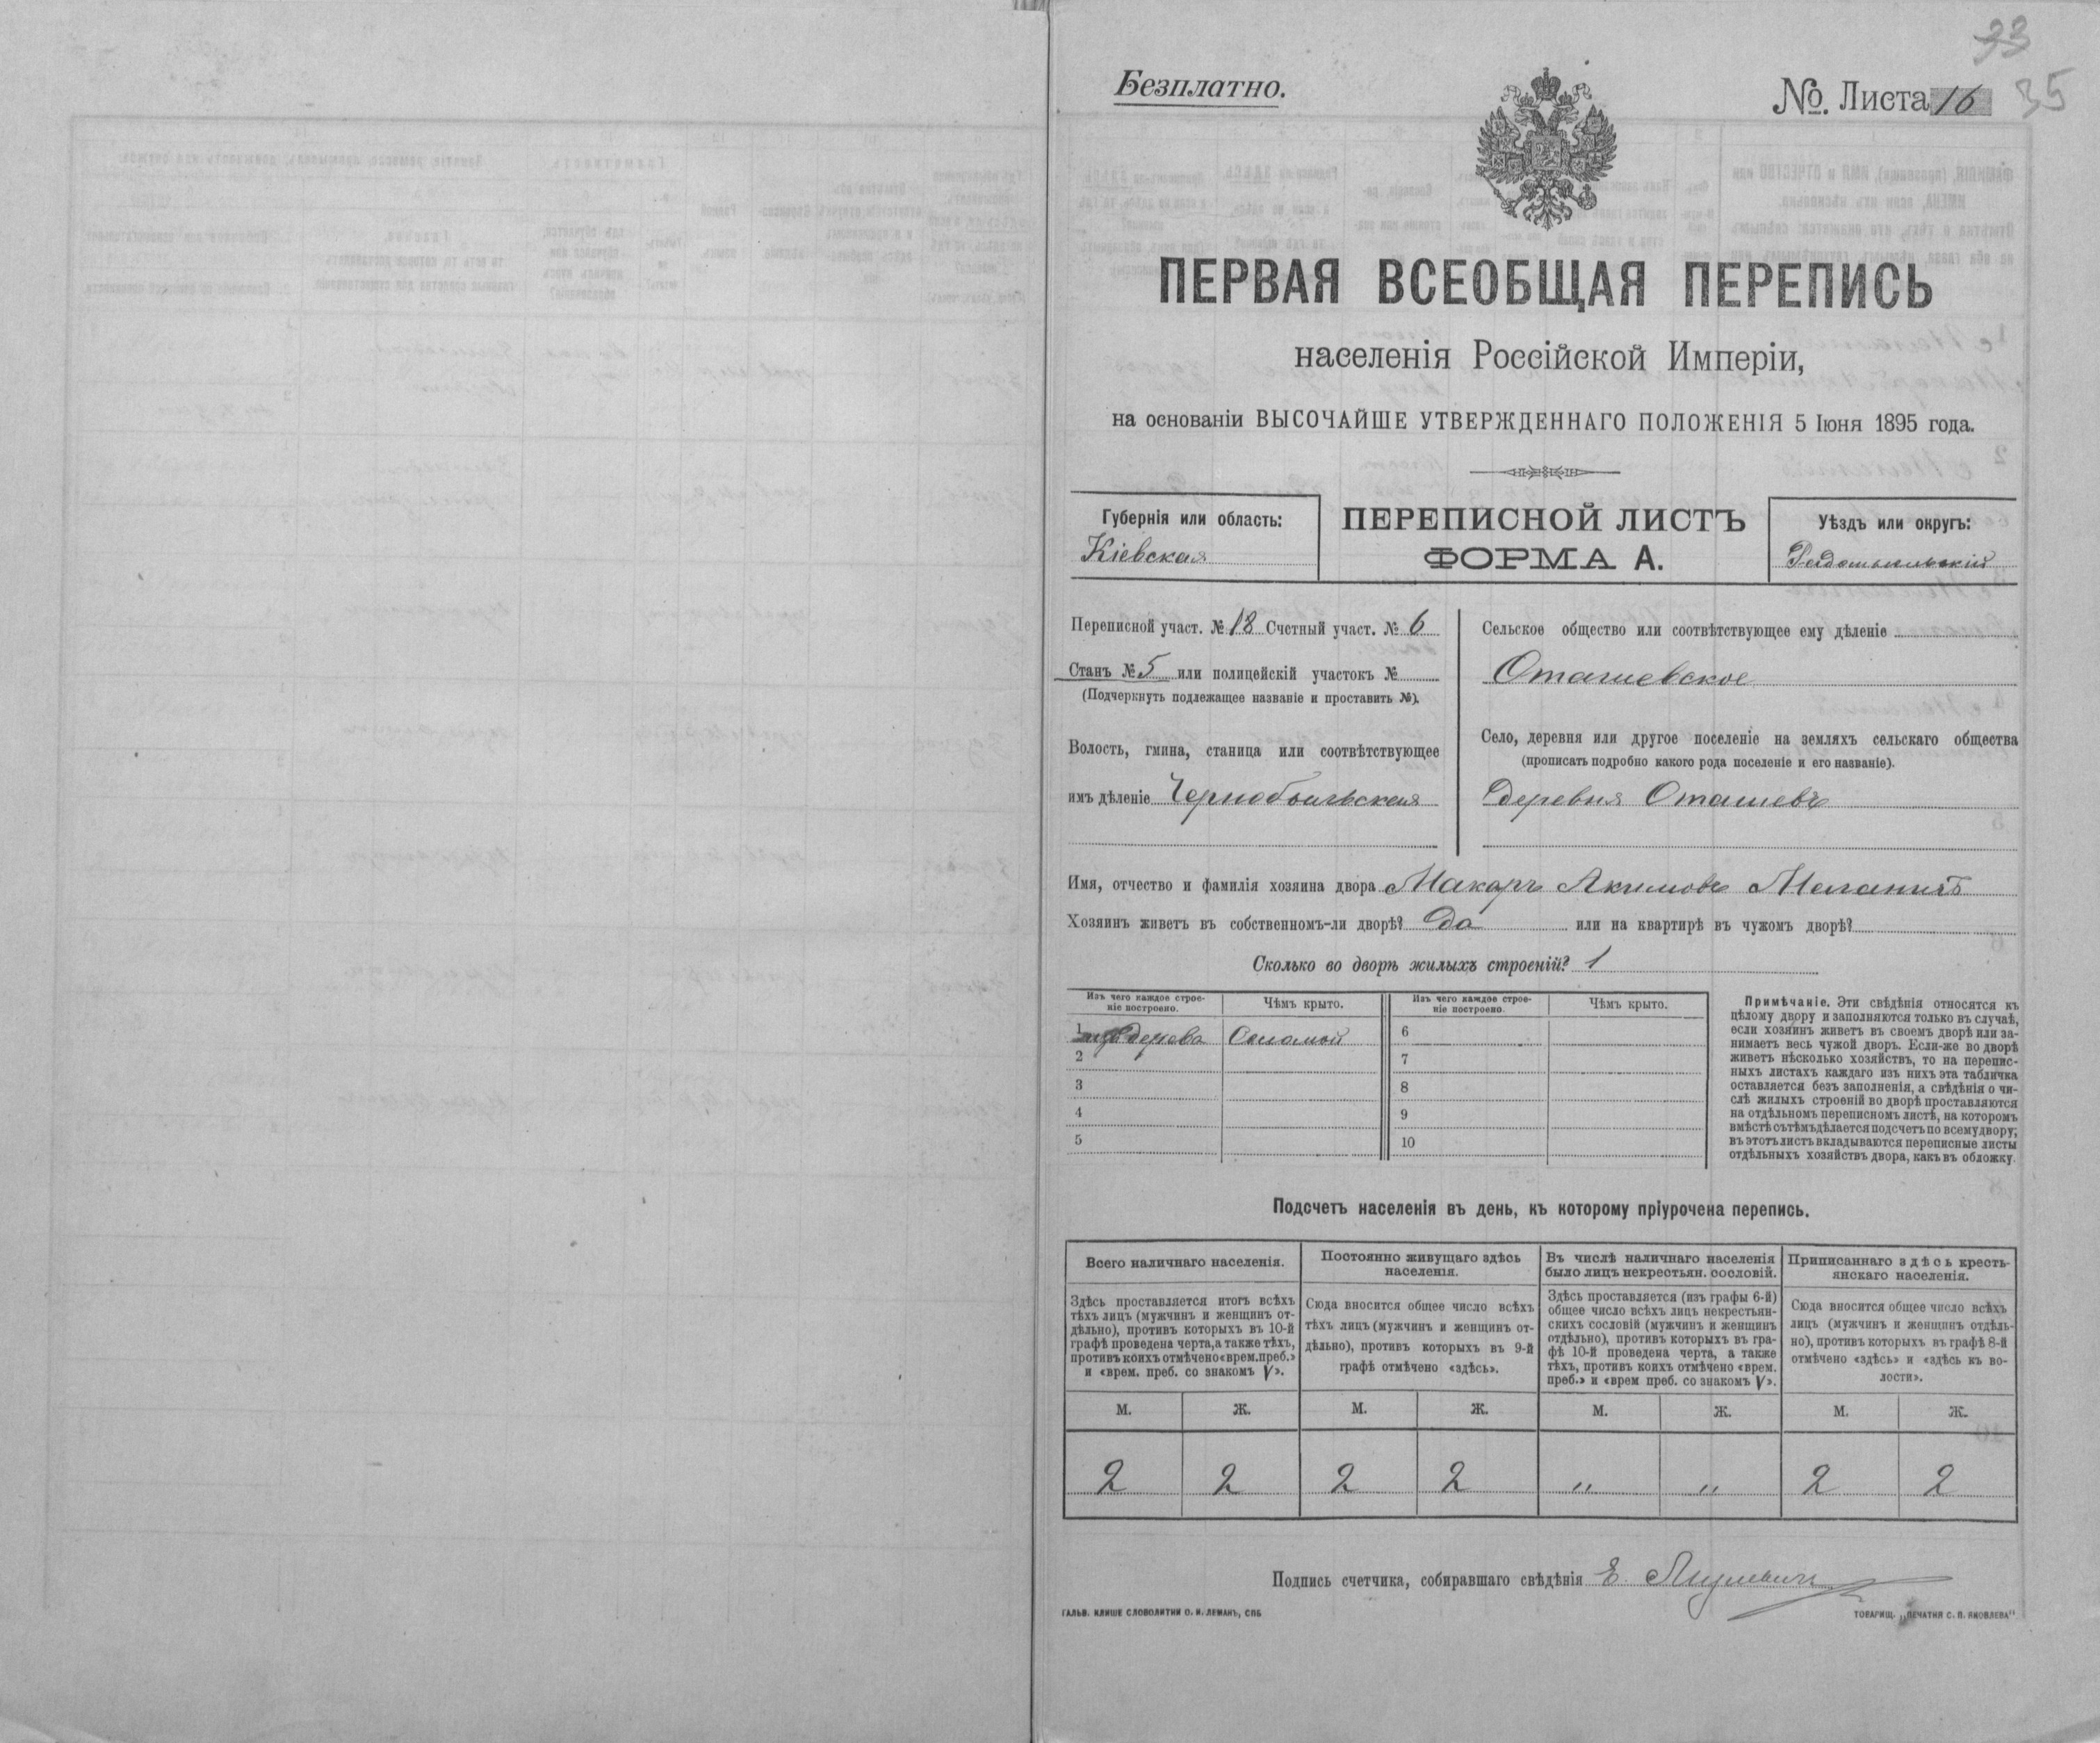 33
35
Безплатно.
№. Листа 16
ПЕРВАЯ ВСЕОБЩАЯ ПЕРЕПИСЬ
населенія Россійской Имперіи,
на основаніи ВЫСОЧАЙШЕ УТВЕРЖДЕННАГО ПОЛОЖЕНІЯ 5 Іюня 1895 года.
Губернія или область:
Кіевская
ПЕРЕПИСНОЙ ЛИСТЪ
ФОРМА А.
Уѣздъ или округъ:
Радомысльскій
Переписной участ. № 18 Счетный участ. № 6
Станъ № 5 или полицейскій участокъ №
(Подчеркнуть подлежащее названіе и проставить №).
Волость, гмина, станица или соотвѣтствующее
имъ дѣленіе Чернобыльская
Сельское общество или соотвѣтствующее ему дѣленіе
Оташевское
Село, деревня или другое поселеніе на земляхъ сельскаго общества
(прописать подробно какого рода поселеніе и его названіе).
Деревня Оташевъ
Имя, отчество и фамилія хозяина двора Макаръ Акимовъ
Хозяинъ живетъ въ собственномъ-ли дворѣ? Да или на квартирѣ въ чужомъ дворѣ?
Сколько во дворѣ жилыхъ строеній? 1
Изъ чего каждое строе-
ніе построено.
Чѣмъ крыто.
Изъ чего каждое строе-
ніе построено.
Чѣмъ крыто.
1 дерева Соломой
2
3
4
5
6
7
8
9
10
Примѣчаніе. Эти свѣдѣнія относятся къ
цѣлому двору и заполняются только въ случаѣ,
если хозяинъ живетъ въ своемъ дворѣ или за-
нимаетъ весь чужой дворъ. Если-же во дворѣ
живетъ нѣсколько хозяйствъ, то на перепис-
ныхъ листахъ каждаго изъ нихъ эта табличка
оставляется безъ заполненія, а свѣдѣнія о чи-
слѣ жилыхъ строеній во дворѣ проставляются
на отдѣльномъ переписномъ листѣ, на которомъ
вмѣстѣ съ тѣмъ дѣлается подсчетъ по всему двору;
въ этотъ листъ вкладываются переписные листы
отдѣльныхъ хозяйствъ двора, какъ въ обложку.
Подсчетъ населенія въ день, къ которому пріурочена перепись.
Всего наличнаго населенія.
Здѣсь проставляется итогъ всѣхъ
тѣхъ лицъ (мужчинъ и женщинъ от-
дѣльно), противъ которыхъ въ 10-й
графѣ проведена черта, а также тѣхъ,
противъ коихъ отмѣчено «врем. преб.»
и «врем. преб. со знакомъ V».
Постоянно живущаго здѣсь
населенія.
Сюда вносится общее число всѣхъ
тѣхъ лицъ (мужчинъ и женщинъ от-
дѣльно), противъ которыхъ въ 9-й
графѣ отмѣчено «здѣсь».
Въ числѣ наличнаго населенія
было лицъ некрестьян. сословій.
Здѣсь проставляется (изъ графы 6-й)
общее число всѣхъ лицъ некрестьян-
скихъ сословій (мужчинъ и женщинъ
отдѣльно), противъ которыхъ въ гра-
фѣ 10-й проведена черта, а также
тѣхъ, противъ коихъ отмѣчено «врем.
преб.» и «врем преб. со знакомъ V».
Приписаннаго здѣсь кресть-
янскаго населенія.
Сюда вносится общее число всѣхъ
лицъ (мужчинъ и женщинъ отдѣль-
но), противъ которыхъ въ графѣ 8-й
отмѣчено «здѣсь» и «здѣсь къ во-
лости».
М. Ж. М. Ж. М. Ж. М. Ж.
2 2 2 2 „ „ 2 2
Подпись счетчика, собиравшаго свѣдѣнія Е.
ГАЛЬВ. КЛИШЕ СЛОВОЛИТНИ О. И. ЛЕМАНЪ, СПБ
ТОВАРИЩ. „ПЕЧАТНЯ С. П. ЯКОВЛЕВА"